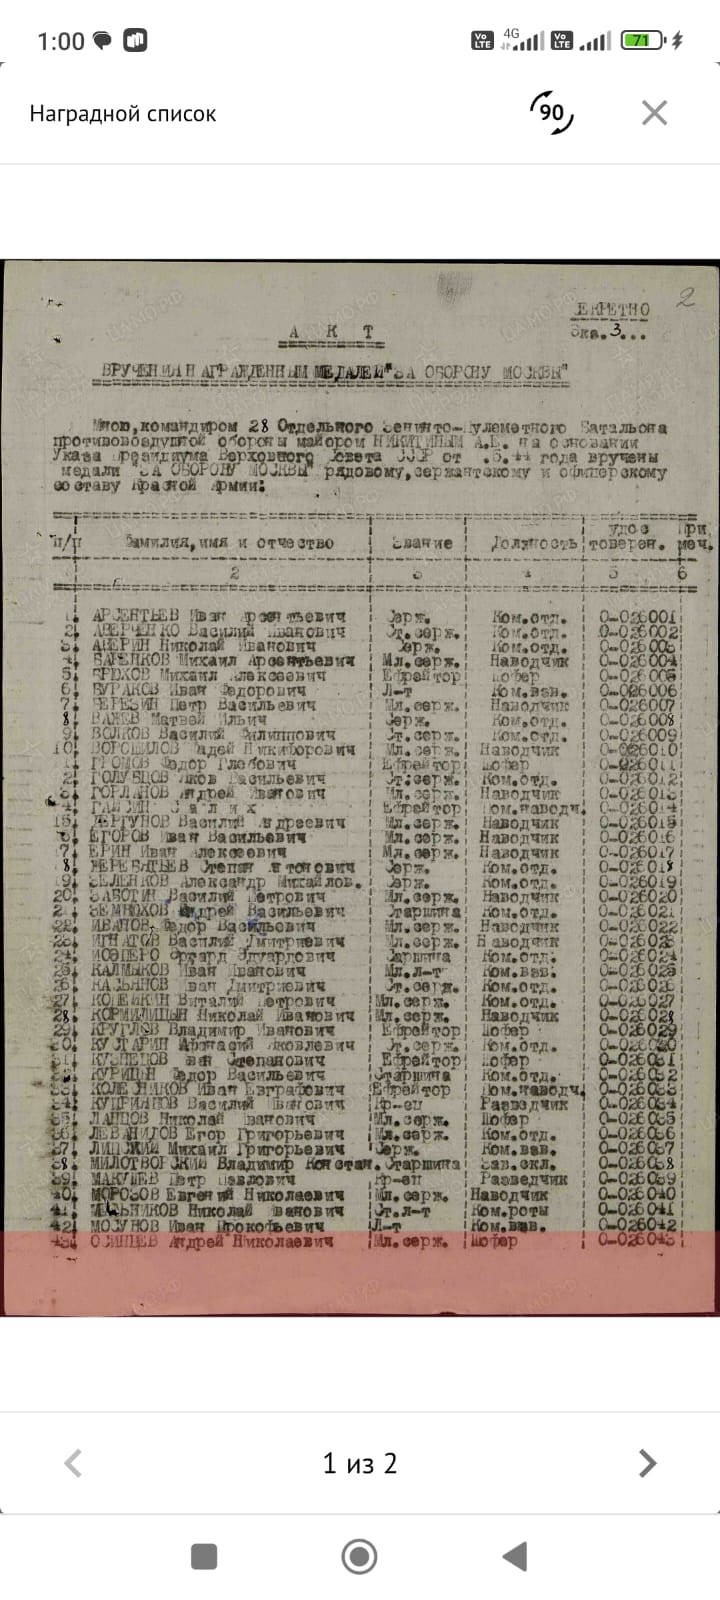 1:00
4G
71
Наградной список
90
2
ЕКРЕТНО
Экз. 3...
А К Т
ВРУЧЕНИЯ НАГРАЖДЕННЫМ МЕДАЛЕЙ "ЗА ОБОРОНУ МОСКВЫ"
Мною, командиром 28 Отдельного Зенитно-пулеметного Батальона
противовоздушной обороны майором НИКИТИНЫМ А.Е. на основании
Указа Президиума Верховного Совета СССР от .5.44 года вручены
медали "ЗА ОБОРОНУ МОСКВЫ" рядовому, сержантскому и офицерскому
составу Красной Армии:
п/р Фамилия, имя и отчество Звание Должность удос товерен. При меч.
2 3 4 5 6
1. АРСЕНТЬЕВ Иван Арсентьевич Серж. Ком.отд. О-026001
2. АВЕРЧЕНКО Василий Иванович Ст.серж. Ком.отд. О-026002
3. АВЕРИН Николай Иванович Серж. Ком.отд. О-026003
4. Михаил Арсентьевич Мл.серж. Наводчик О-026004
5. БРЮХОВ Михаил Алексеевич Ефрейтор Шофер О-026005
6. БУРАКОВ Иван Федорович Л-т Ком.взв. О-026006
7. БЕРЕЗИН Петр Васильевич Мл.серж. Наводчик О-026007
8. Матвей Ильич Серж. Ком.отд. О-026008
9. ВОЛКОВ Василий Филиппович Ст.серж. Ком.отд. О-026009
10. ВОРОШИЛОВ Фадей Никифорович Мл.серж. Наводчик О-026010
1. ГРОМОВ Федор Глебович Ефрейтор Шофер О-026011
2. ГОЛУБЦОВ Яков Васильевич Ст.серж. Ком.отд. О-026012
3. ГОРЛАНОВ Андрей Иванович Мл.серж. Наводчик О-026013
4. Салих Ефрейтор Пом.наводч. О-026014
15. ДЕРГУНОВ Василий Андреевич Мл.серж. Наводчик О-026015
6. ЕГОРОВ Иван Васильевич Мл.серж. Наводчик О-026016
7. ЕРИН Иван Алексеевич Мл.серж. Наводчик О-026017
8. ЖЕРЕБЯТЬЕВ Степан Антонович Серж. Ком.отд. О-026018
19. ЗЕЛЕНКОВ Александр Михайлов. Серж. Ком.отд. О-026019
20. ЗАБОТИН Василий Петрович Мл.серж. Наводчик О-026020
2. ЗЕМНЮХОВ Андрей Васильевич Старшина Ком.отд. О-026021
22. ИВАНОВ Федор Васильович Мл.серж. Наводчик О-026022
23. ИГНАТОВ Василий Дмитриевич Мл.серж. Наводчик О-026023
24. Эдуардович Старшина Ком.отд. О-026024
25. КАЛМЫКОВ Иван Иванович Мл.л-т Ком.взв. О-026025
26. КАЗЬЯНОВ Иван Дмитриевич Ст.серж. Ком.отд. О-026026
27. Виталий Петрович Мл.серж. Ком.отд. О-026027
28. КОРМИЛИЦЫН Николай Иванович Мл.серж. Наводчик О-026028
29. КРУГЛОВ Владимир Иванович Ефрейтор Шофер О-026029
30. Афанасий Яковлевич Ст.серж. Ком.отд. О-026030
31. КУЗНЕЦОВ Иван Степанович Ефрейтор Шофер О-026031
32. КУРИЦЫН Федор Васильевич Старшина Ком.отд. О-026032
33. КОЛЕСНИКОВ Иван Евграфович Ефрейтор Пом.наводч. О-026033
34. КУПРИЯНОВ Василий Иванович Кр-ец Разведчик О-026034
35. ЛАПЦОВ Николай Иванович Мл.серж. Шофер О-026035
36. ЛЕВАНИДОВ Егор Григорьевич Мл.серж. Ком.отд. О-026036
37. ЛИПСКИЙ Михаил Григорьевич Серж. Ком.взв. О-026037
38. МИЛОТВОРСКИЙ Владимир Констан. Старшина Зав.скл. О-026038
39. МАКЛЕВ Петр Павлович Кр-ец Разведчик О-026039
40. МОРОЗОВ Евгений Николаевич Мл.серж. Наводчик О-026040
41. МЕЛЬНИКОВ Николай Иванович Ст.л-т Ком.роты О-026041
42. МОЗУНОВ Иван Прокофьевич Л-т Ком.взв. О-026042
43. ОСИПЦЕВ Андрей Николаевич Мл.серж. Шофер О-026043
1 из 2